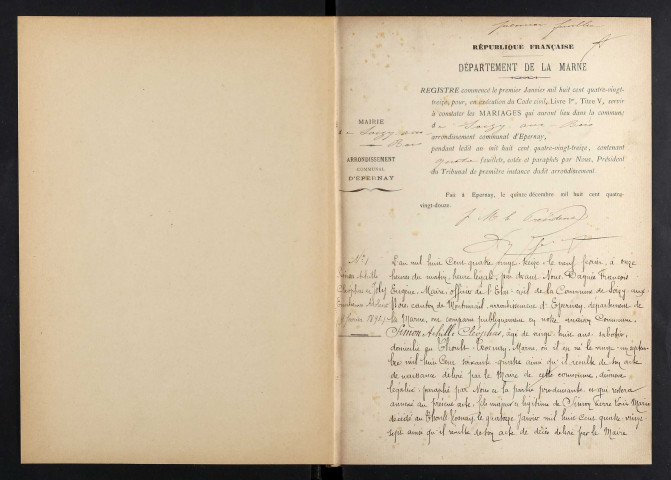 premier feuillet
RÉPUBLIQUE FRANÇAISE
DÉPARTEMENT DE LA MARNE
REGISTRE commencé le premier Janvier mil huit cent quatre-vingt-
treize, pour, en exécution du Code civil, Livre Ier, Titre V, servir
à constater les MARIAGES qui auront lieu dans la commune
de Soizy-aux-Bois
arrondissement communal d'Epernay,
pendant ledit an mil huit cent quatre-vingt-treize, contenant
quatre feuillets, cotés et paraphés par Nous, Président
du Tribunal de première instance dudit arrondissement.
Fait à Epernay, le quinze décembre mil huit cent quatre-
vingt-douze.
MAIRIE
de Soizy-aux-
Bois
ARRONDISSEMENT
COMMUNAL
D'ÉPERNAY
P. M. le Président
N° 1
Simon Achille
Cléophas & Joly
9 février 1893
L'an mil huit Cent quatre vingt-treize le neuf février, à onze
heures du matin, heure légale, par devant Nous François
Eugène, Maire officier de l'Etat-civil de la Commune de Soizy-aux-
Bois canton de Montmirail, arrondissement d'Epernay, département de
la Marne, ont comparu publiquement en notre maison Commune
Simon Achille Cléophas, âgé de vingt-huit ans,
domicilié au Thoult-Trosnay, Marne, où il est né le vingt-un
mil huit Cent soixante-quatre ainsi qu'il résulte de son acte
de naissance délivré par le Maire de cette commune, dûment
légalisé, paraphé par Nous et la partie produisante et qui restera
annexé au présent acte, fils majeur & légitime de Simon Pierre Louis
décédé au Thoult-Trosnay, le quatorze janvier mil huit Cent quatre-vingt-
sept ainsi qu'il résulte de son acte de décès délivré par le Maire